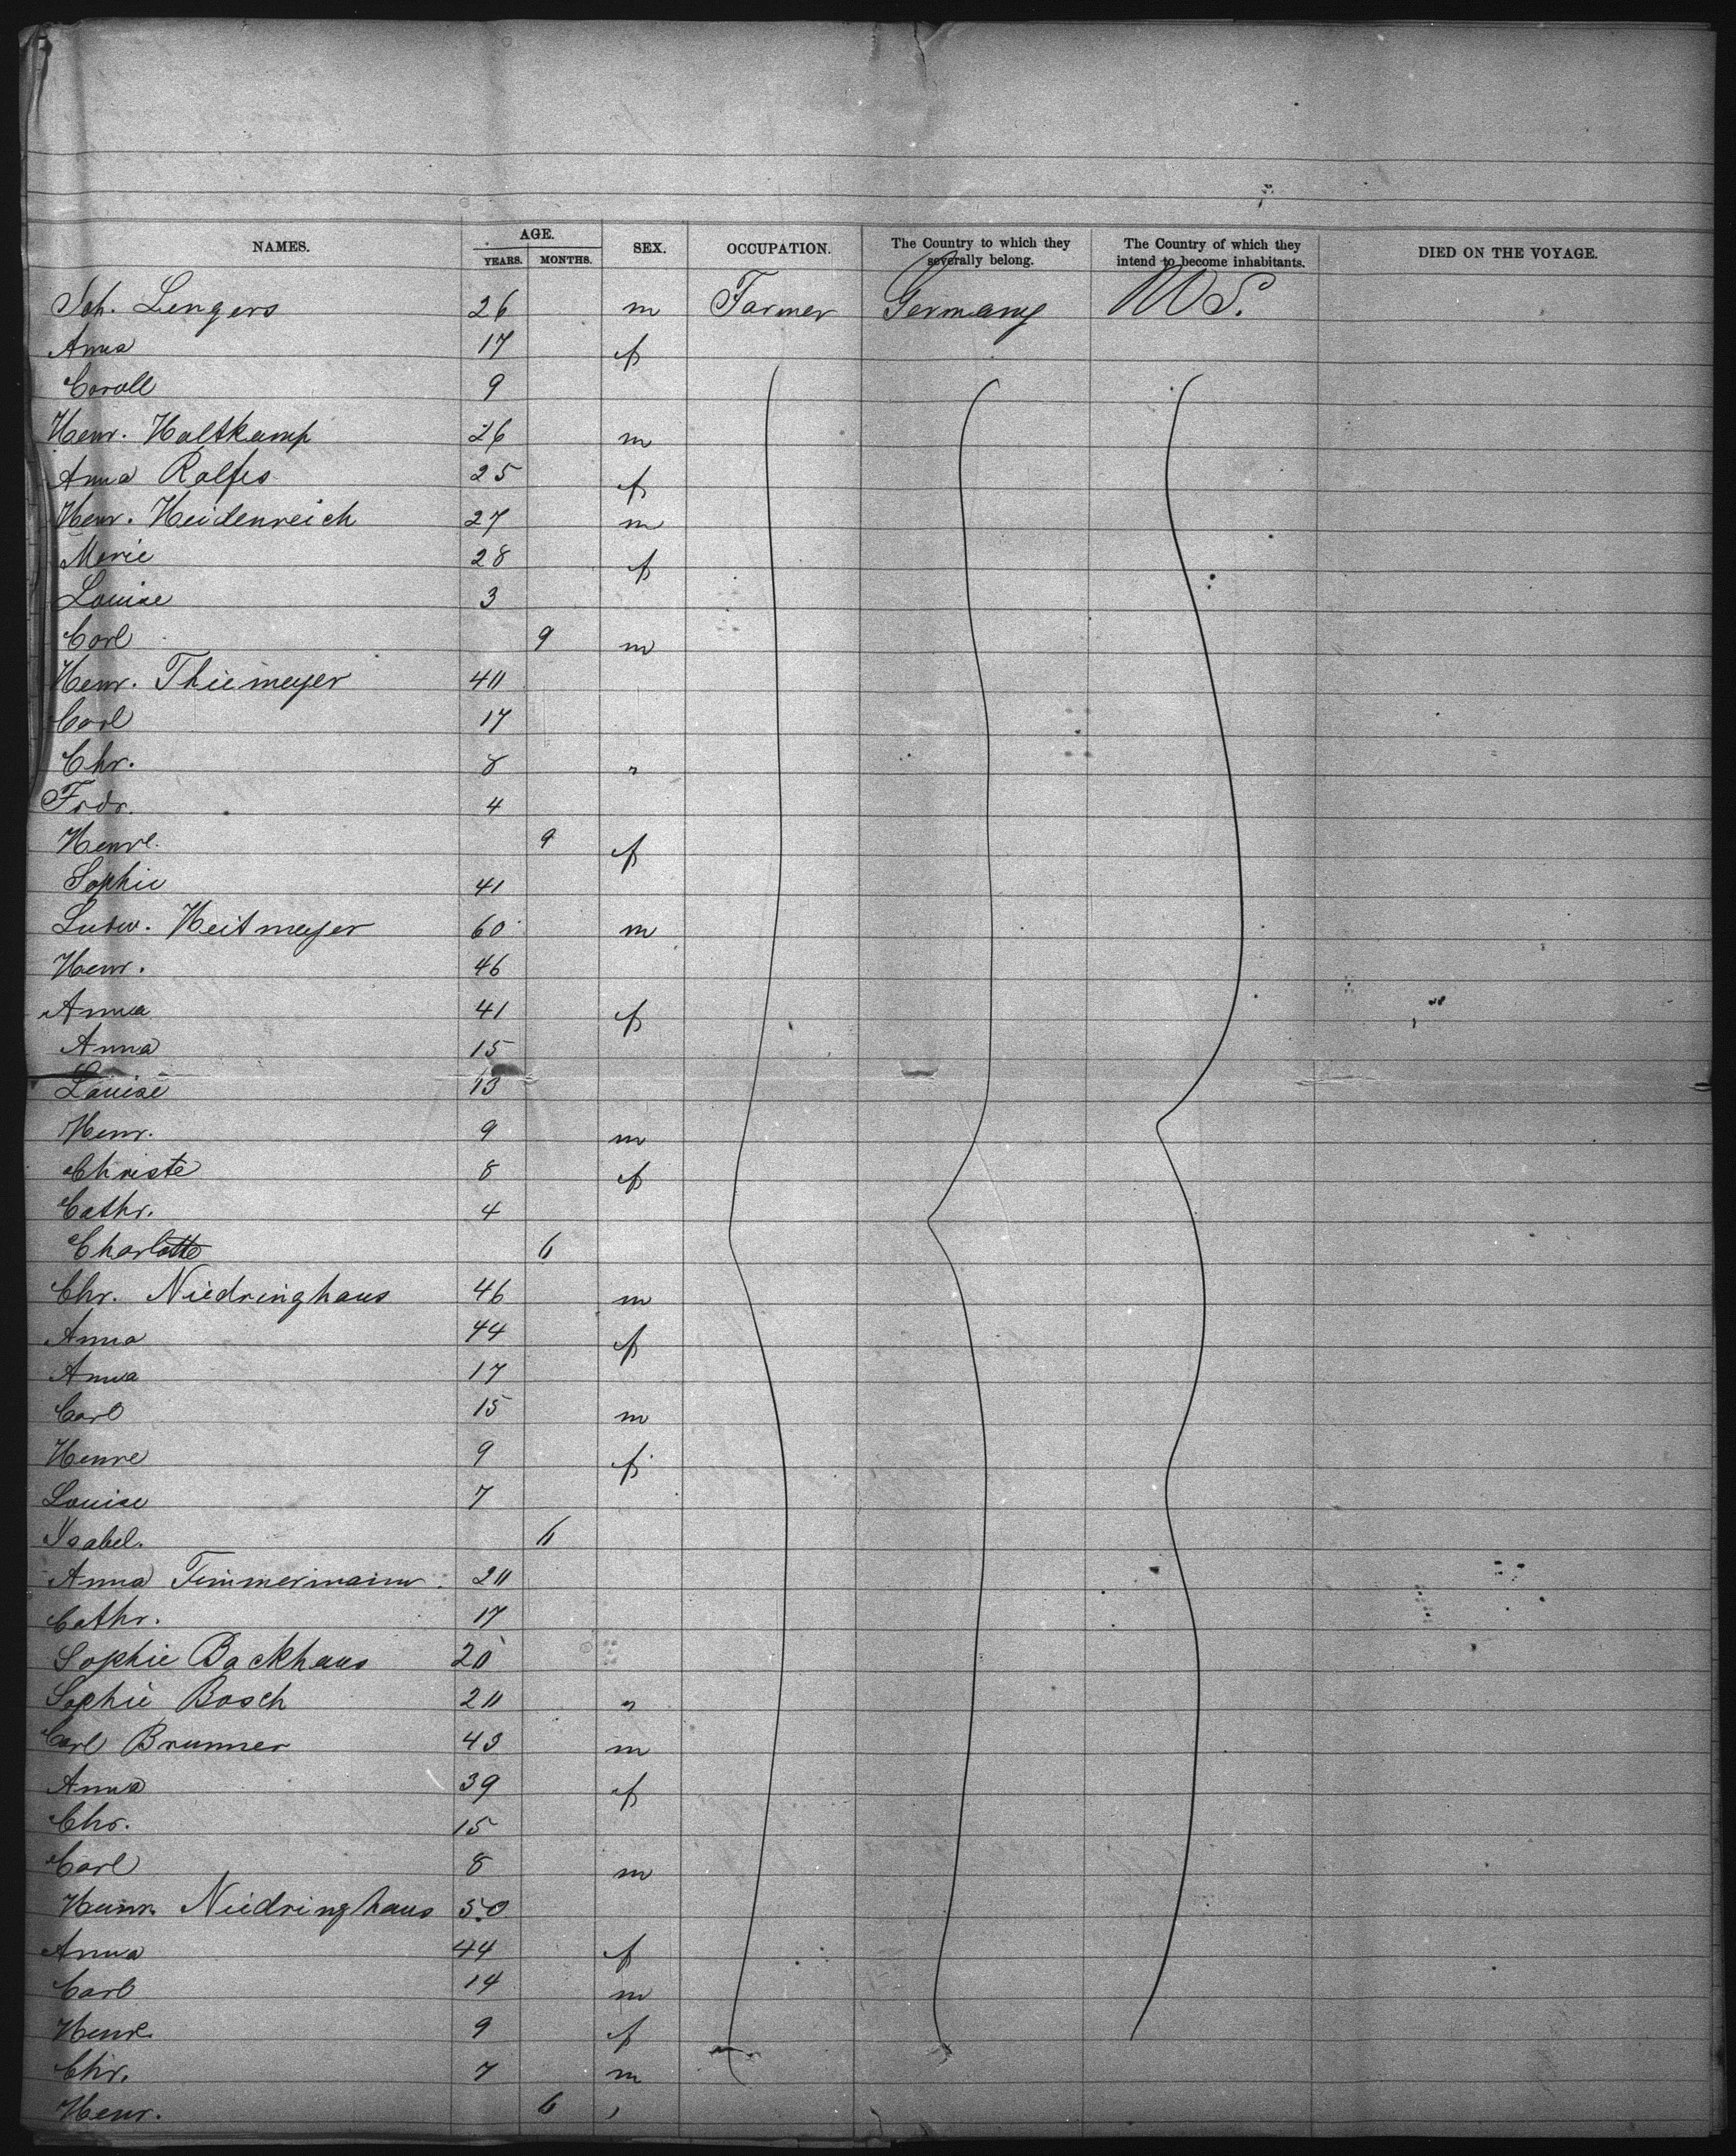 NAMES. AGE. SEX. OCCUPATION. The Country to which they severally belong. The Country of which they intend to become inhabitants. DIED ON THE VOYAGE.
YEARS. MONTHS.
Joh. Lengers 26 m Farmer Germany U S.
Anna 17 f
Caroll 9
Henr. Holtkamp 26 m
Anna Rolfes 25 f
Henr. Heidenreich 27 m
Marie 28 f
Louise 3
Carl 9 m
Henr. Thiemeyer 40
Carl 17
Chr. 8 "
Frdr. 4
Henre. 9 f
Sophie 41
Ludw. Heitmeyer 60 m
Henr. 46
Anna 41 f
Anna 15
Louise 13
Henr. 9 m
Christe 8 f
Cathr. 4
Charlotte 6
Chr. Niedringhaus 46 m
Anna 44 f
Anna 17
Carl 15 m
Henre 9 f
Louise 7
Isabel. 6
Anna Timmermann. 20
Cathr. 17
Sophie Backhaus 20
Sophie Bosch 20 "
Carl Brunner 43 m
Anna 39 f
Chr. 15
Carl 8 m
Heinr. Niedringhaus 50
Anna 44 f
Carl 14 m
Henre. 9 f
Chr. 7 m
Henr. 6 "